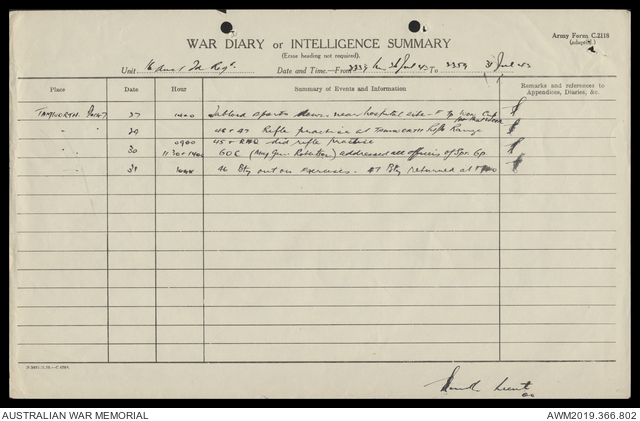 Army Form C.2118
(adapted.)
WAR DIARY or INTELLIGENCE SUMMARY
(Erase heading not required).
Unit 16 Aust Fd Regt. Date and Time—From 2359 hr Jul 42 To 2359 31 Jul 42
Place Date Hour Summary of Events and Information Remarks and references to Appendices, Diaries, &c.
TAMWORTH 27 1400 sports near hospital site - Tp won Cup
" " 29 46 + 47 Rifle practice at TAMWORTH Rifle Range
0900 45 + RHQ did rifle practice
" " 30 11.30 GOC (Maj Gen Robertson) addressed all officers of Spr Gp.
" " 31 46 Bty out on exercises. 47 Bty returned at
Lieut
AUSTRALIAN WAR MEMORIAL
AWM2019.366.802